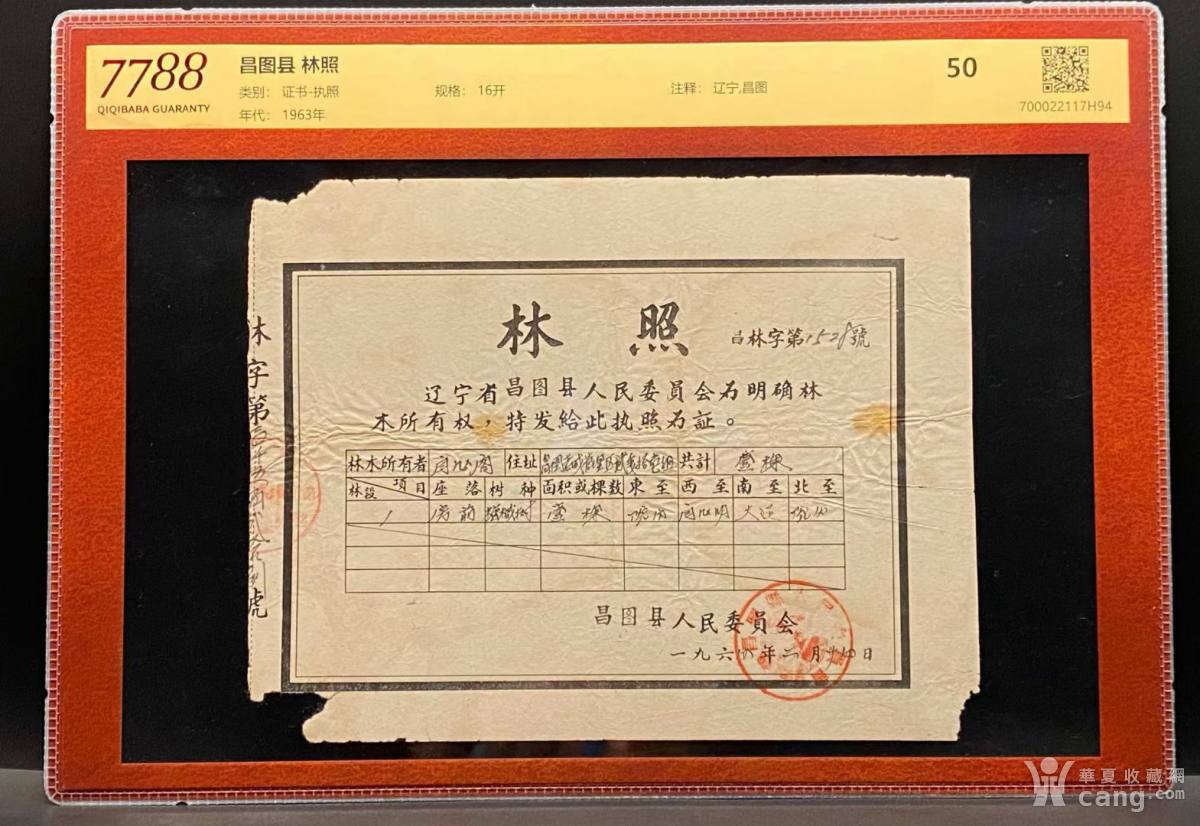 7788
QIQIBABA GUARANTY
昌图县 林照
类别: 证书-执照
规格: 16开
注释: 辽宁,昌图
年代: 1963年
50
700022117H94
林 照
昌林字第1528號
辽宁省昌图县人民委員会为明确林
木所有权,特发給此执照为証。
林木所有者 住址 共計 壹棵
林段 項目 座落 树种 面积或棵数 東至 西至 南至 北至
1 房前 壹棵 大道
昌图县人民委員会
一九六四年二月 日
林字第 號
華夏收藏網
cang.com